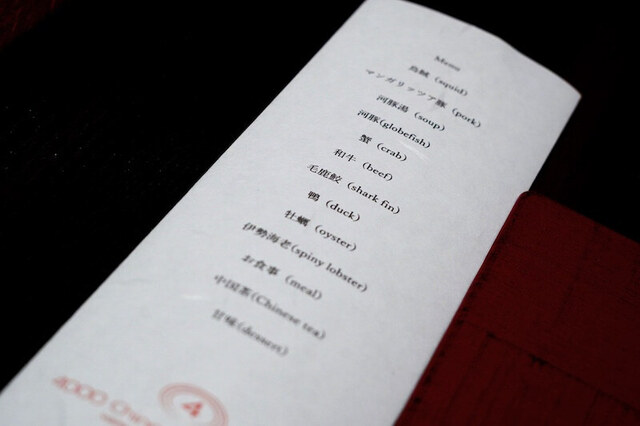 Menu
烏賊 (squid)
マンガリッツア豚 (pork)
河豚湯 (soup)
河豚(globefish)
蟹 (crab)
和牛 (beef)
毛鹿鮫 (shark fin)
鴨 (duck)
牡蠣 (oyster)
伊勢海老(spiny lobster)
お食事 (meal)
中国茶(Chinese tea)
甘味(dessert)
4
4000